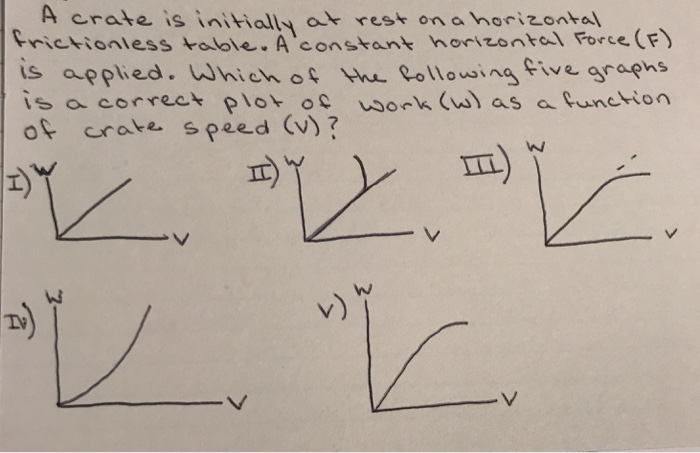 A crate is initially at rest on a horizontal
frictionless table. A constant horizontal Force (F)
is applied. Which of the following five graphs
is a correct plot of work (W) as a function
of crate speed (V)?
I) W V
II) W V
III) W V
IV) W V
V) W V